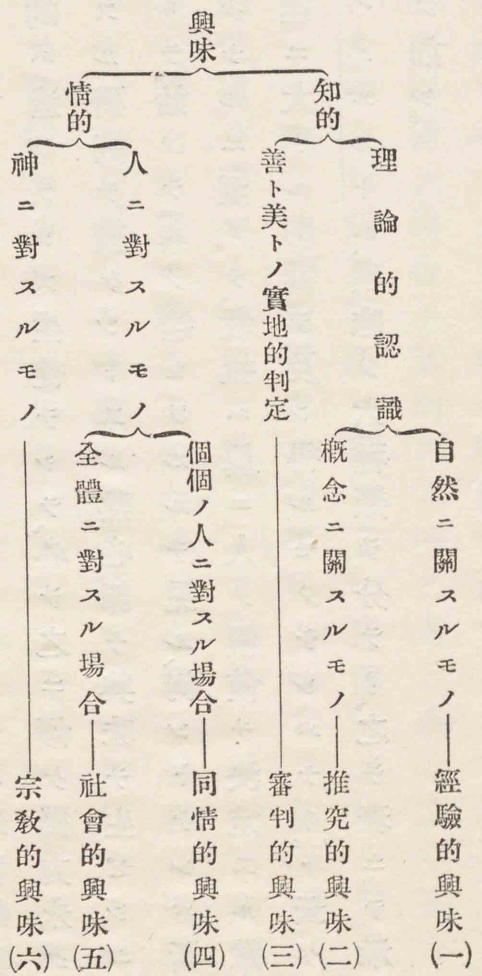 興味
知的
理論的認識
自然ニ關スルモノ
經驗的興味(一)
概念ニ關スルモノ
推究的興味(二)
善ト美トノ實地的判定
審判的興味(三)
情的
人ニ對スルモノ
個個ノ人ニ對スル場合
同情的興味(四)
全體ニ對スル場合
社會的興味(五)
神ニ對スルモノ
宗敎的興味(六)